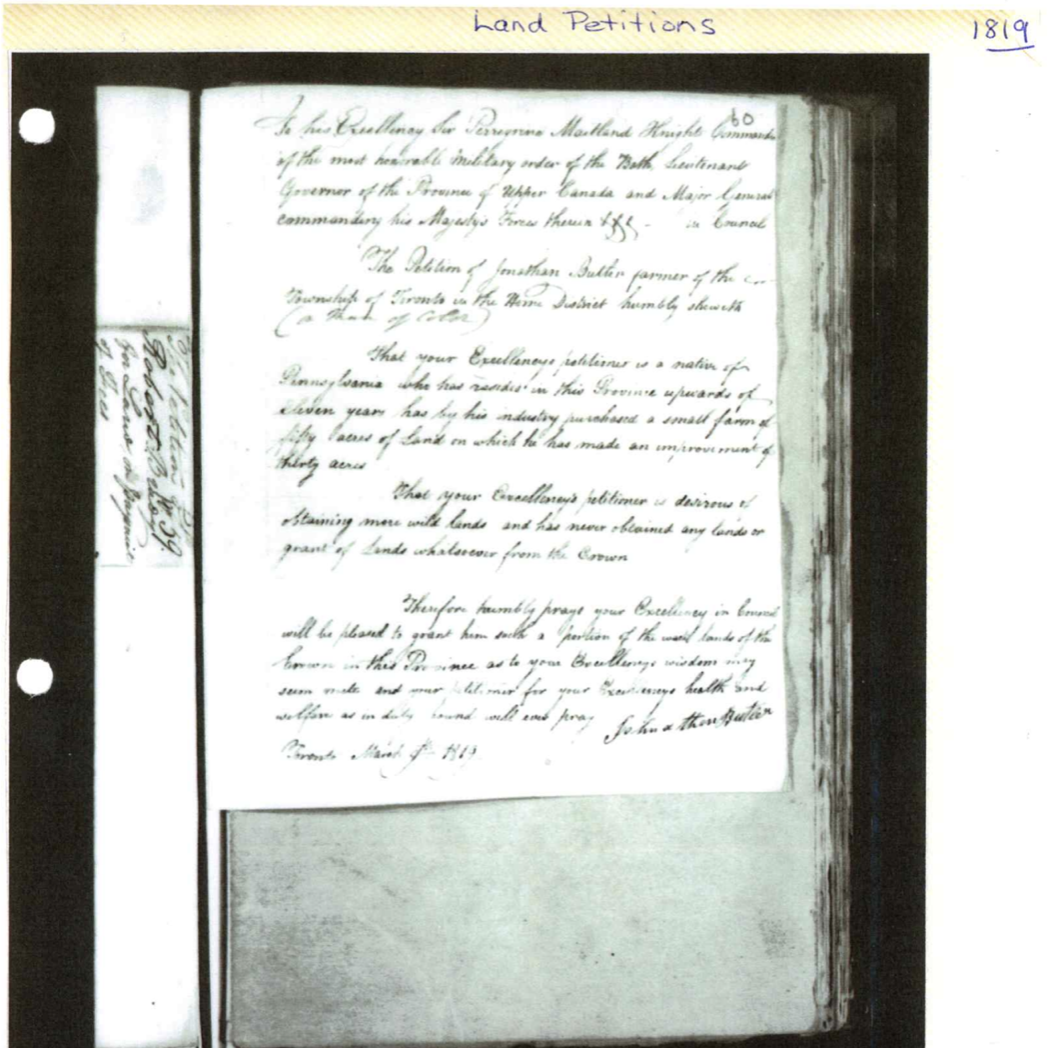 Land Petitions
1819
60
To his Excellency Sir Peregrine Maitland Knight Commander
of the most honorable Military order of the Bath, Lieutenant
Governor of the Province of Upper Canada and Major General
commanding his Majesty's Forces therein &&& - in Council
The Petition of Jonathan Butler farmer of the
Township of Toronto in the Home District humbly sheweth
(a Man of Color)
That your Excellencys petitioner is a native of
Pennsylvania who has resided in this Province upwards of
eleven years has by his industry purchased a small farm of
fifty acres of Land on which he has made an improvement of
thirty acres
That your Excellency's petitioner is desirous of
obtaining more wild lands and has never obtained any lands or
grant of Lands whatsoever from the Crown
Therefore humbly prays your Excellency in Council
will be pleased to grant him such a portion of the wast lands of the
Crown in this Province as to your Excellencys wisdom may
seem mete and your petitioner for your Excellencys health and
welfare as in duty bound will ever pray
Johnathan Butler
Toronto March 9th 1819
Petition
Robert
for Land
of Fees